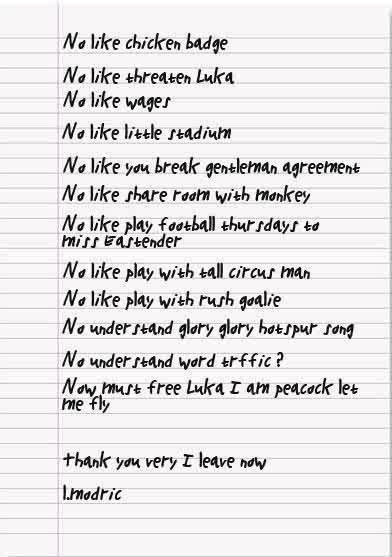 No like chicken badge
No like threaten Luka
No like wages
No like little stadium
No like you break gentleman agreement
No like share room with monkey
No like play football thursdays to
miss Eastender
No like play with tall circus man
No like play with rush goalie
No understand glory glory hotspur song
No understand word trffic ?
Now must free Luka I am peacock let
me fly
thank you very I leave now
l.modric